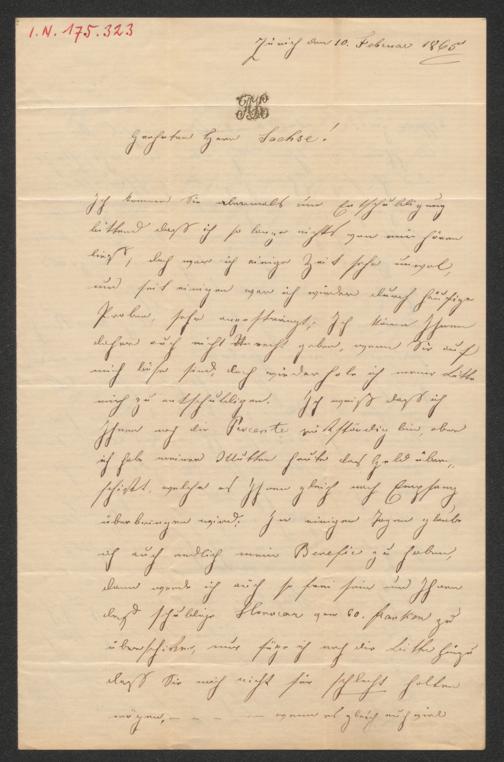 I.N. 175.323
Zürich den 10. Februar 1865
Geehrter Herr Sachse!
Ich komme Sie abermals um Entschuldigung
bittend daß ich so lange nichts von mir hören
ließ, doch war ich einige Zeit sehr unwol,
und seit einigen war ich wieder durch häufige
Proben, sehr angestrengt; Ich könne Ihnen
daher auch nicht Unrecht geben, wenn Sie auf
mich böse sind, doch wiederhole ich meine Bitte
mich zu entschuldigen. Ich weiß daß ich
Ihnen noch die Percente rückständig bin, aber
ich habe meiner Mutter heute das Geld über-
schickt, welche es Ihnen gleich nach Empfang
überbringen wird. In einigen Tagen glaube
ich auch endlich mein Benefice zu haben,
dann werde ich auch so frei sein und Ihnen
das schuldige Honorar von 60. Franken zu
überschicken, nur füge ich noch die Bitte hinzu
daß Sie mich nicht für schlecht halten
mögen, — — — wenn es gleich auch viel